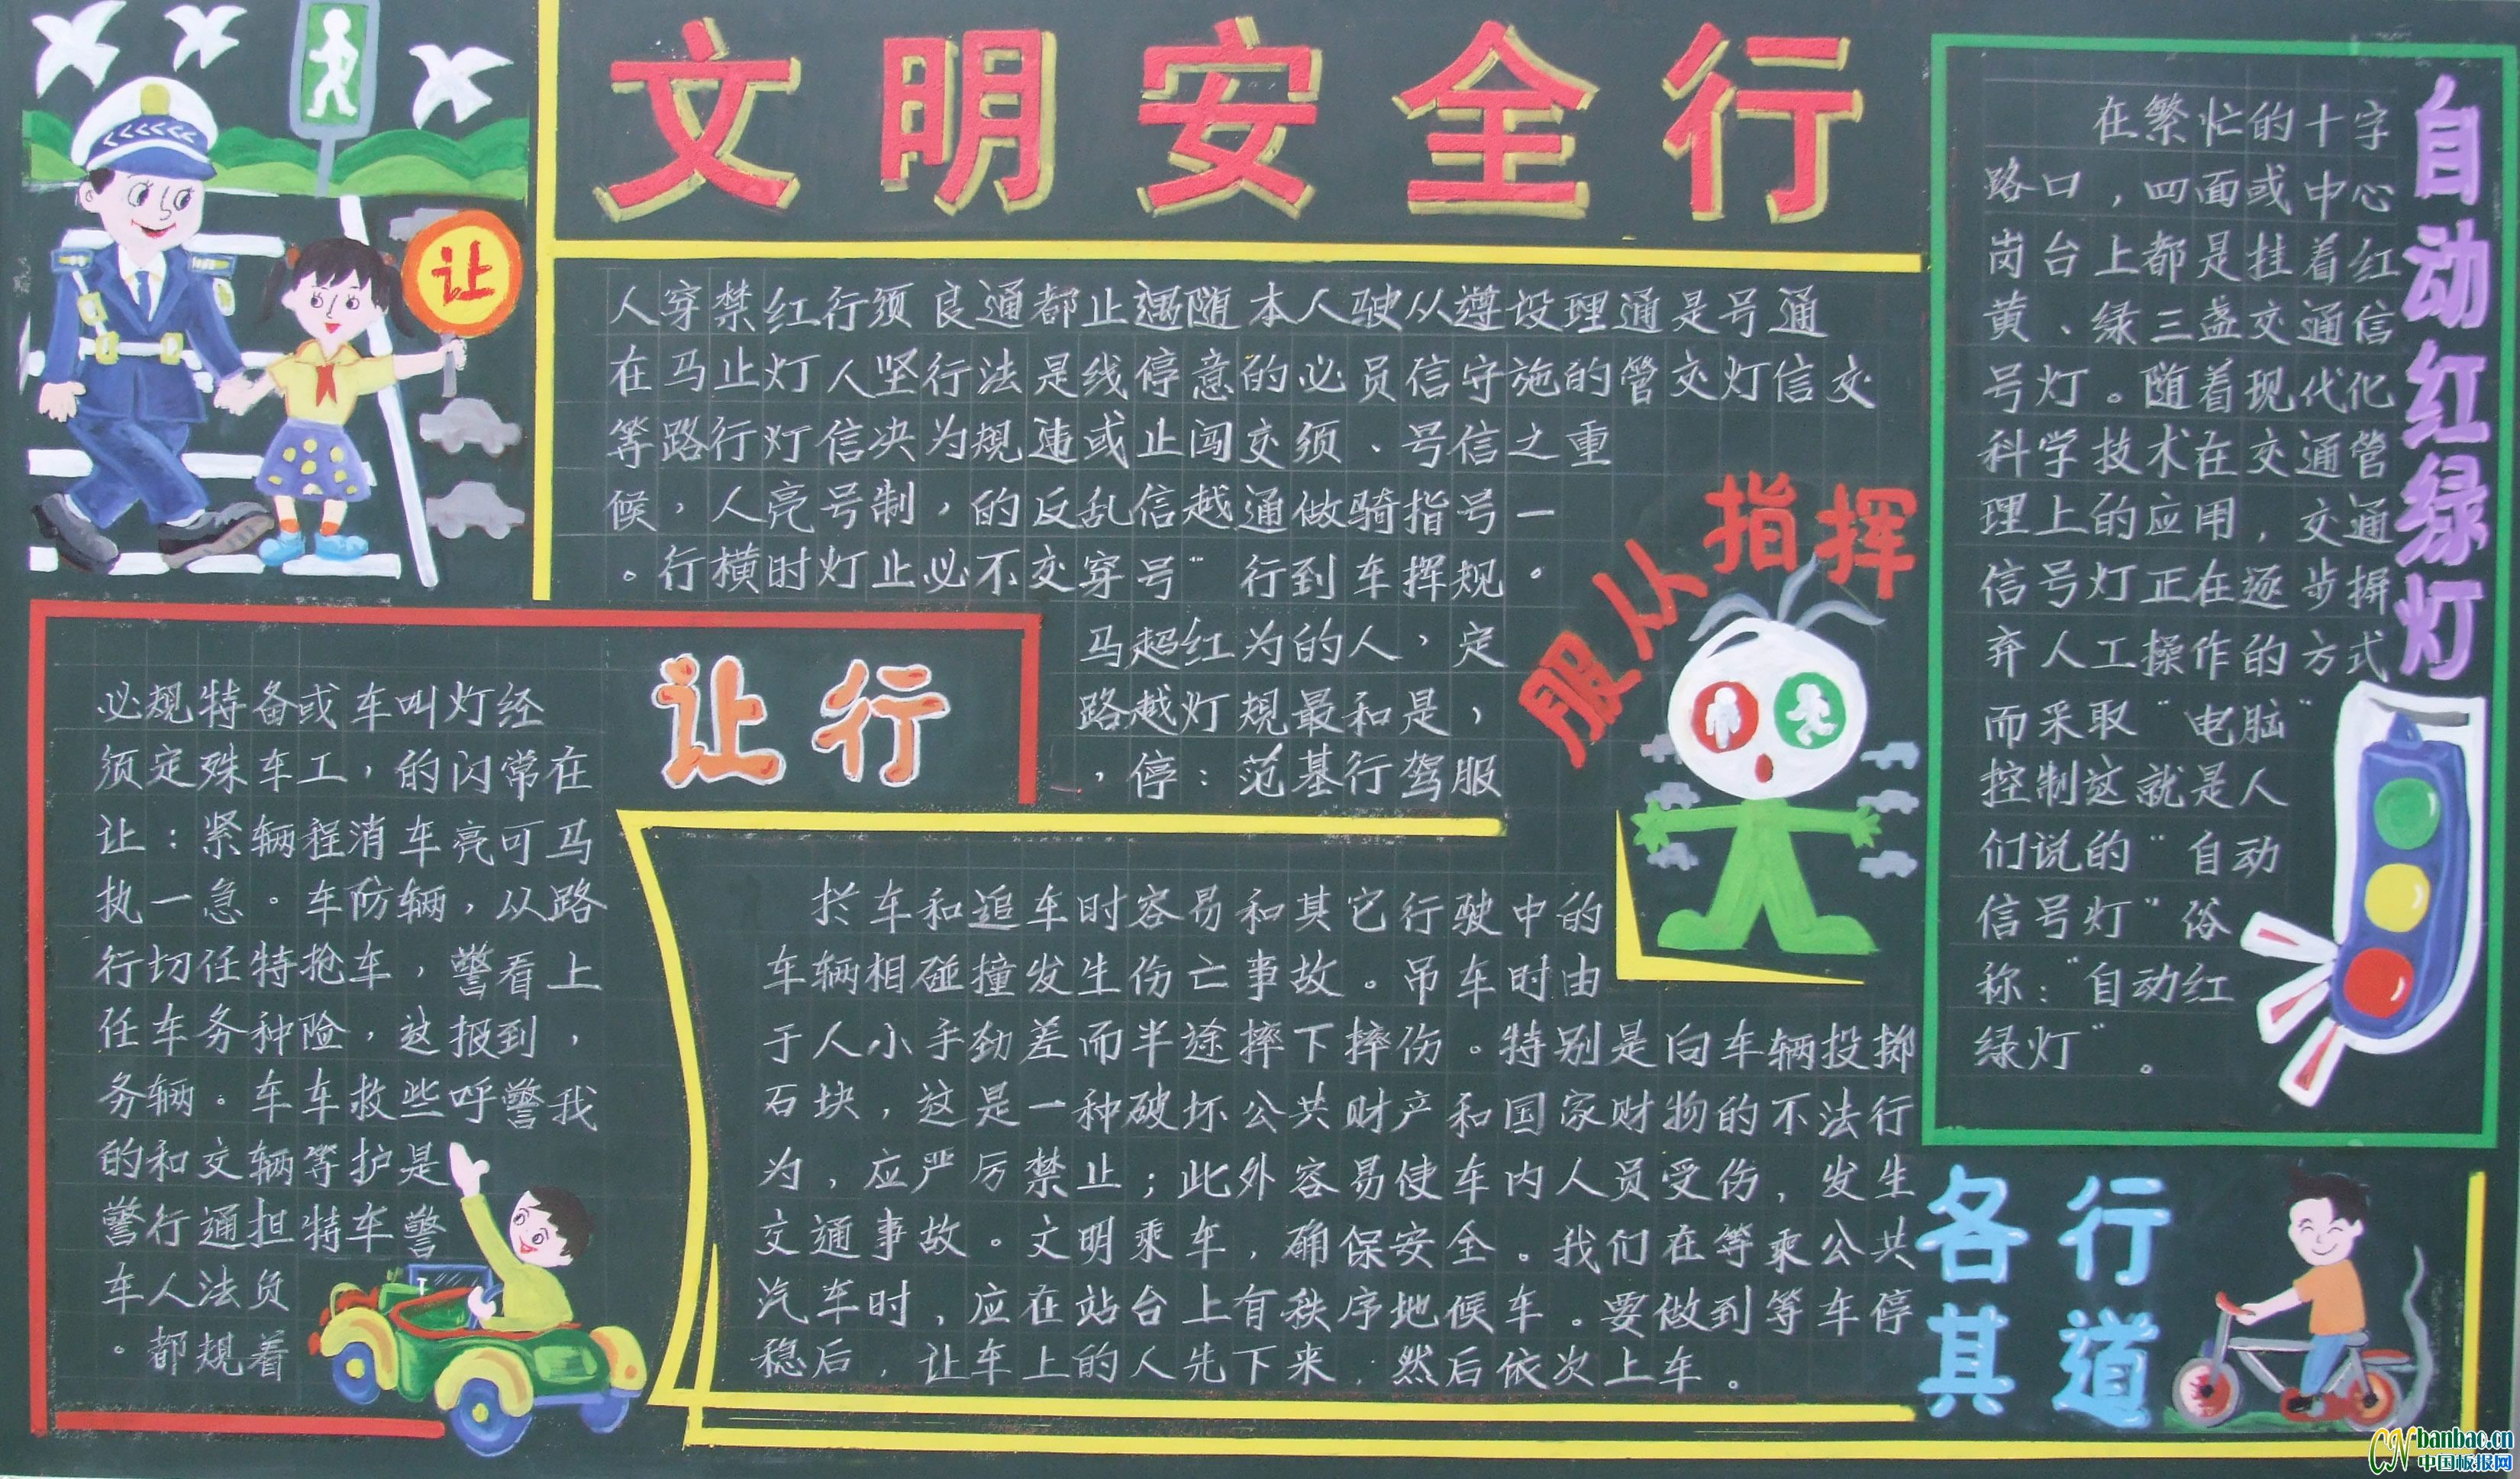 文明安全行
让
交
通信
号灯
是交
通管
理的重
设施之一。
遵守信号规定，服
从信号指挥，是驾
驶员、骑车人和行
人必须做到的最基
本的交通行为规范：
随意闯越"红灯停
遇停止信号超越停
止线或乱穿马路，
都是违反交
通法规的不
良行为，必
须坚决制止
行人信号灯
红灯灯亮时，
禁止行人横
穿马路，行
人在等候。
服从指挥
让行
在马路上，我
经常可从看到警
灯闪亮，警报呼
叫的车辆，这些是警
车，消防车，救护车
或工程车抢险车等特
备车辆。特种车辆担负着
特殊紧急任务。交通法规
规定：一切车辆和行人都
必须让执行任务的警车。
车和追车时容易和其它行驶中的
车辆相碰撞发生伤亡事故。吊车时由
于人小手劲差而半途摔下摔伤。特别是向车辆投掷
石块，这是一种破坏公共财产和国家财物的不法行
为，应严厉禁止；此外容易使车内人员受伤，发生
交通事故。文明乘车，确保安全。我们在等乘公共
汽车时，应在站台上有秩序地候车。要做到等车停
稳后，让车上的人先下来，然后依次上车。
各行
其道
自动红绿灯
在繁忙的十字
路口，四面或中心
岗台上都是挂着红
黄、绿三盏交通信
号灯。随着现代化
科学技术在交通管
理上的应用，交通
信号灯正在逐步摒
弃人工操作的方式
而采取"电脑"
控制这就是人
们说的"自动
信号灯"俗
称："自动红
绿灯"。
CN banbao.cn
中国板报网